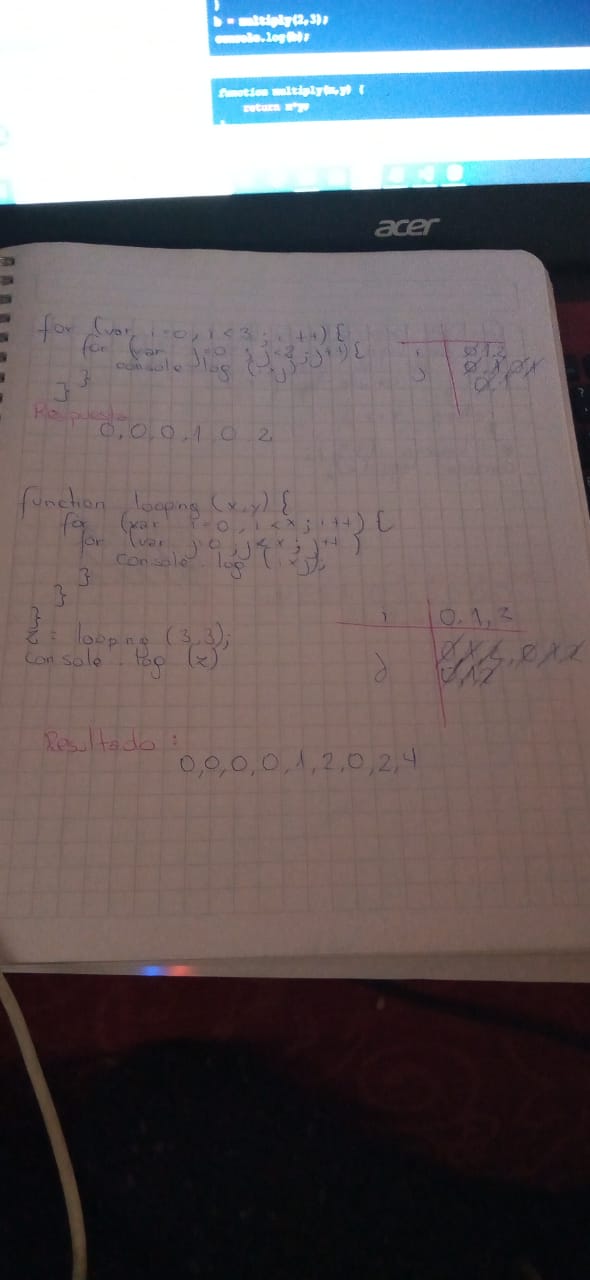 }
b = multiply(2,3);
console.log(b);
function multiply(x,y) {
return x*y;
acer
for (var i=0, i<3; i++) {
for (var j=0; j<2; j++) {
console.log (i*j)
}
}
i 0,1,2
j
Respuesta
0,0,0,1,0,2
function looping (x,y) {
for (var i=0, i<x; i++) {
for (var j=0, j<x; j++
console.log (i*j);
}
}
}
z = looping (3,3);
console.log (z)
i 0,1,3
j
Resultado:
0,0,0,0,1,2,0,2,4